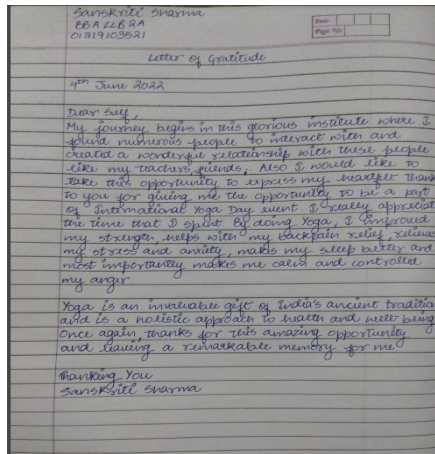 Sanskriti Sharma
BBA LLB 2A
01219103521
Date
Page No.
Letter of Gratitude
4th June 2022
Dear Self,
My journey begins in this glorious institute where I
found numerous people to interact with and
created a wonderful relationship with these people
like my teachers, friends. Also I would like to
take this opportunity to express my heartfelt thank
to you for giving me the opportunity to be a part
of International Yoga Day event I really appreciat
the time that I spent By doing Yoga, I improved
my strength, helps with my backpain relief, relieves
my stress and anxiety, makes my sleep better and
most importantly makes me calm and controlled
my anger.
Yoga is an invaluable gift of India's ancient tradition
and is a holistic approach to health and well-being
Once again, thanks for this amazing opportunity
and leaving a remarkable memory for me
Thanking You
Sanskriti Sharma